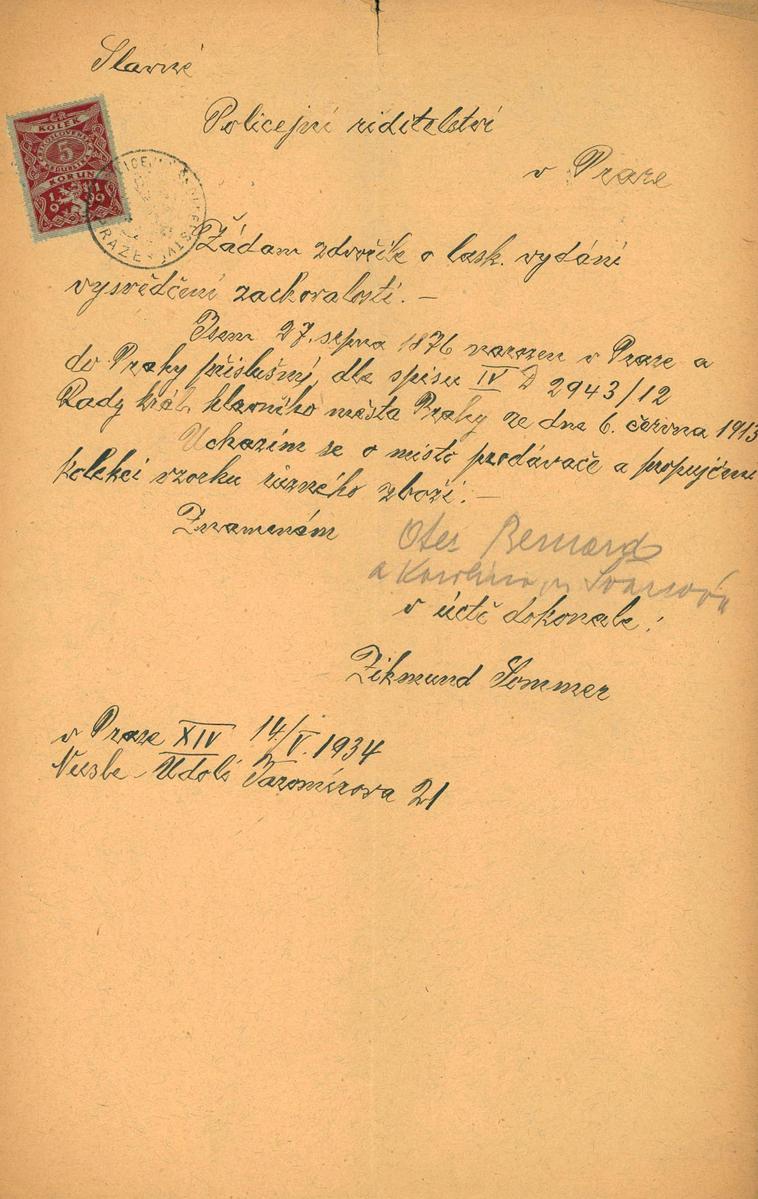 Slavné
Policejní riditelství
v Praze
KOLEK
5
KORUN
1919
PRAZE
Žádam zdvořile o lask. vydání
vysvědčení zachovalosti. –
Jsem 27. srpna 1876 narozen v Praze a
do Prahy příslušný, dle spisu IV D 2943/12
Rady král. hlavního města Prahy ze dne 6. června 1913
Ucházím se o místo prodávače a propujčení
kolekcí vzorku různého zboží. –
Znamenám
Otec Bernard
a Karolina r. Švarcová
v úctě dokonalé:
Zikmund Sommer
v Praze XIV 14/V. 1934
Nusle-Udolí Jaromírova 21